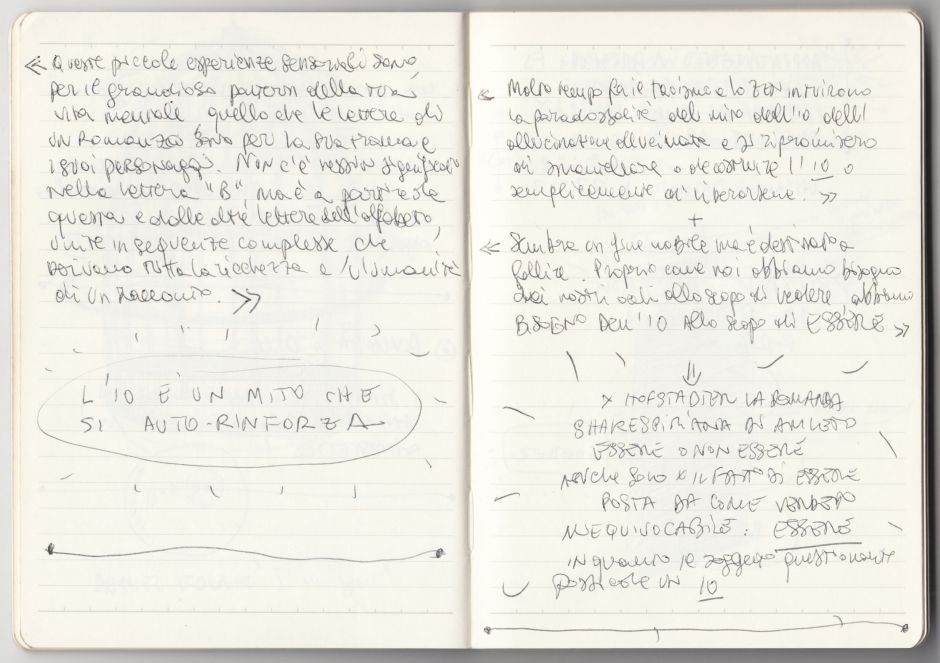 « Queste piccole esperienze sensoriali sono,
per il grandioso pattern della tua
vita mentale, quello che le lettere di
un romanzo sono per la sua trama e
i suoi personaggi. Non c'è nessun significato
nella lettera "B", ma è a partire da
questa e dalle altre lettere dell'alfabeto,
unite in sequenze complesse che
derivano tutta la ricchezza e l'umanità
di un racconto. »
L'IO È UN MITO CHE
SI AUTO-RINFORZA
« Molto tempo fa il taoismo e lo ZEN intuirono
la paradossalità del mito dell'io dell'
allucinazione allucinata e si ripromisero
di smantellare o decostruire l'IO o
semplicemente di liberarsene. »
+
« Sembra un fine nobile ma è destinato a
fallire. Proprio come noi abbiamo bisogno
dei nostri occhi allo scopo di vedere, abbiamo
BISOGNO DELL'IO allo scopo di ESSERE »
⇓
x HOFSTADTER LA DOMANDA
SHAKESPIRIANA DI AMLETO
ESSERE O NON ESSERE
ANCHE SOLO x IL FATTO DI ESSERE
POSTA DÀ COME
INEQUIVOCABILE: ESSERE
IN QUANTO il soggetto questionante
possiede un IO